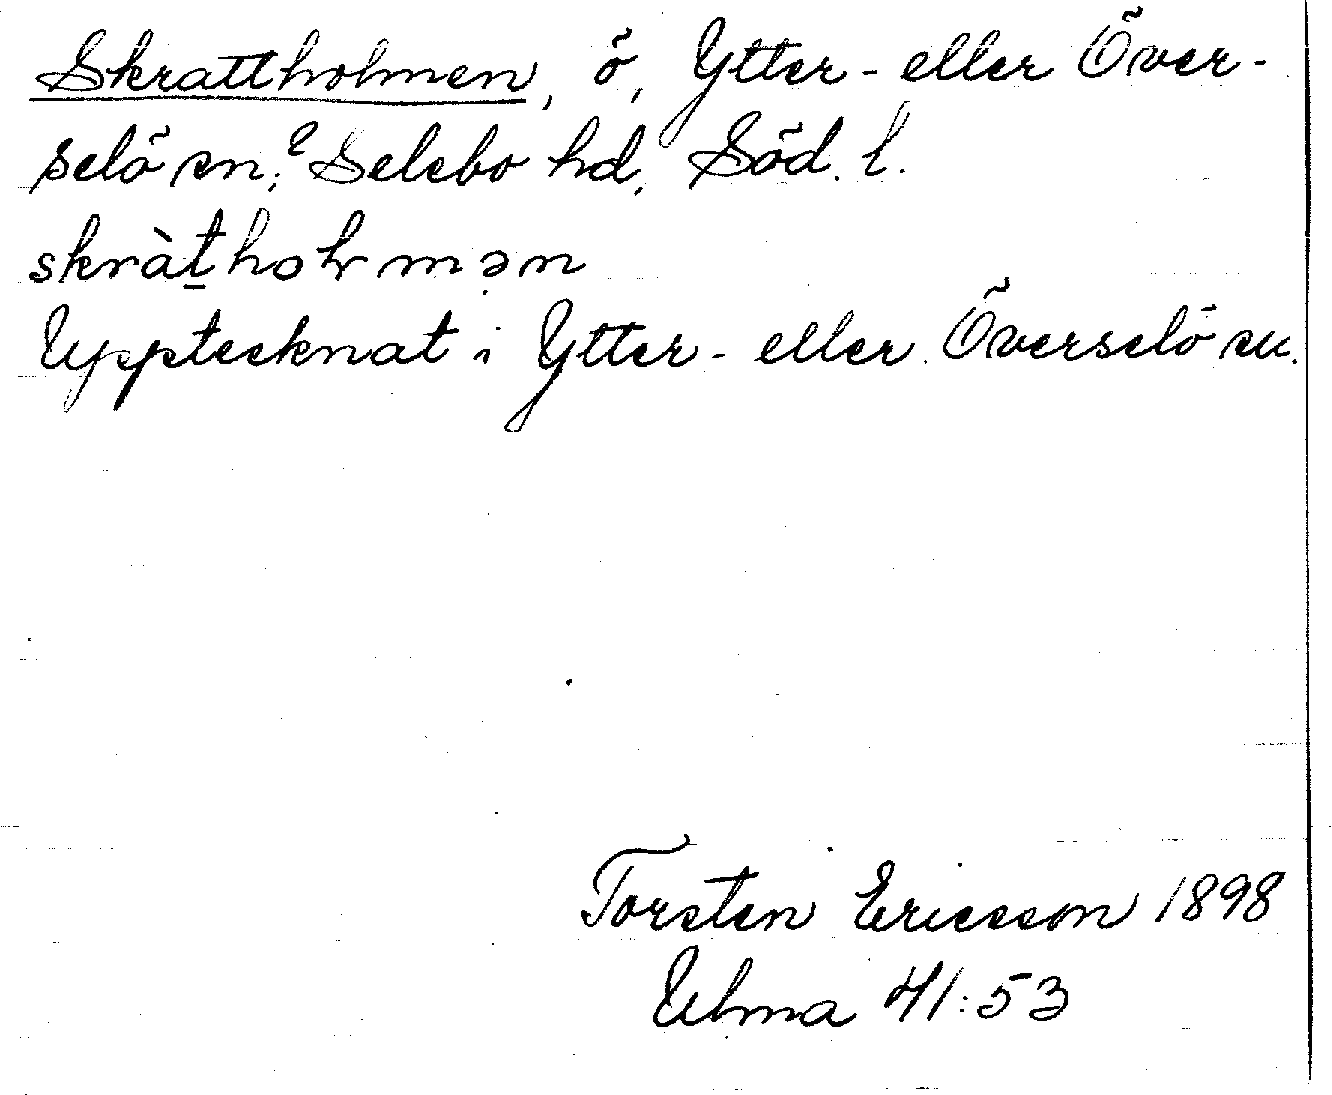 Skrattholmen, ö, Ytter- eller Över-
selö sn;? Selebo hd, Söd. l.
skràt̲hoɫmən
Upptecknat i Ytter- eller Överselö sn.
Torsten Ericsson 1898
Ulma 41:53